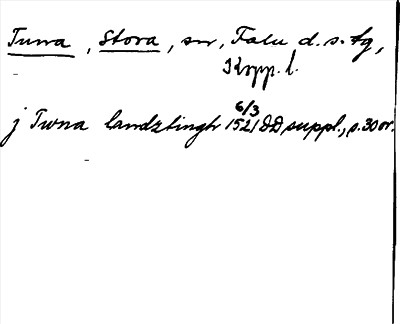 Tuna, Stora, sn, Falu d. s. tg,
Kopp. l.
j Twna landztingh 6/3 1521 DD suppl., s. 30 or.